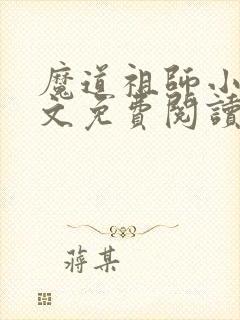 魔道祖師小
文免費閱讀
蔣某